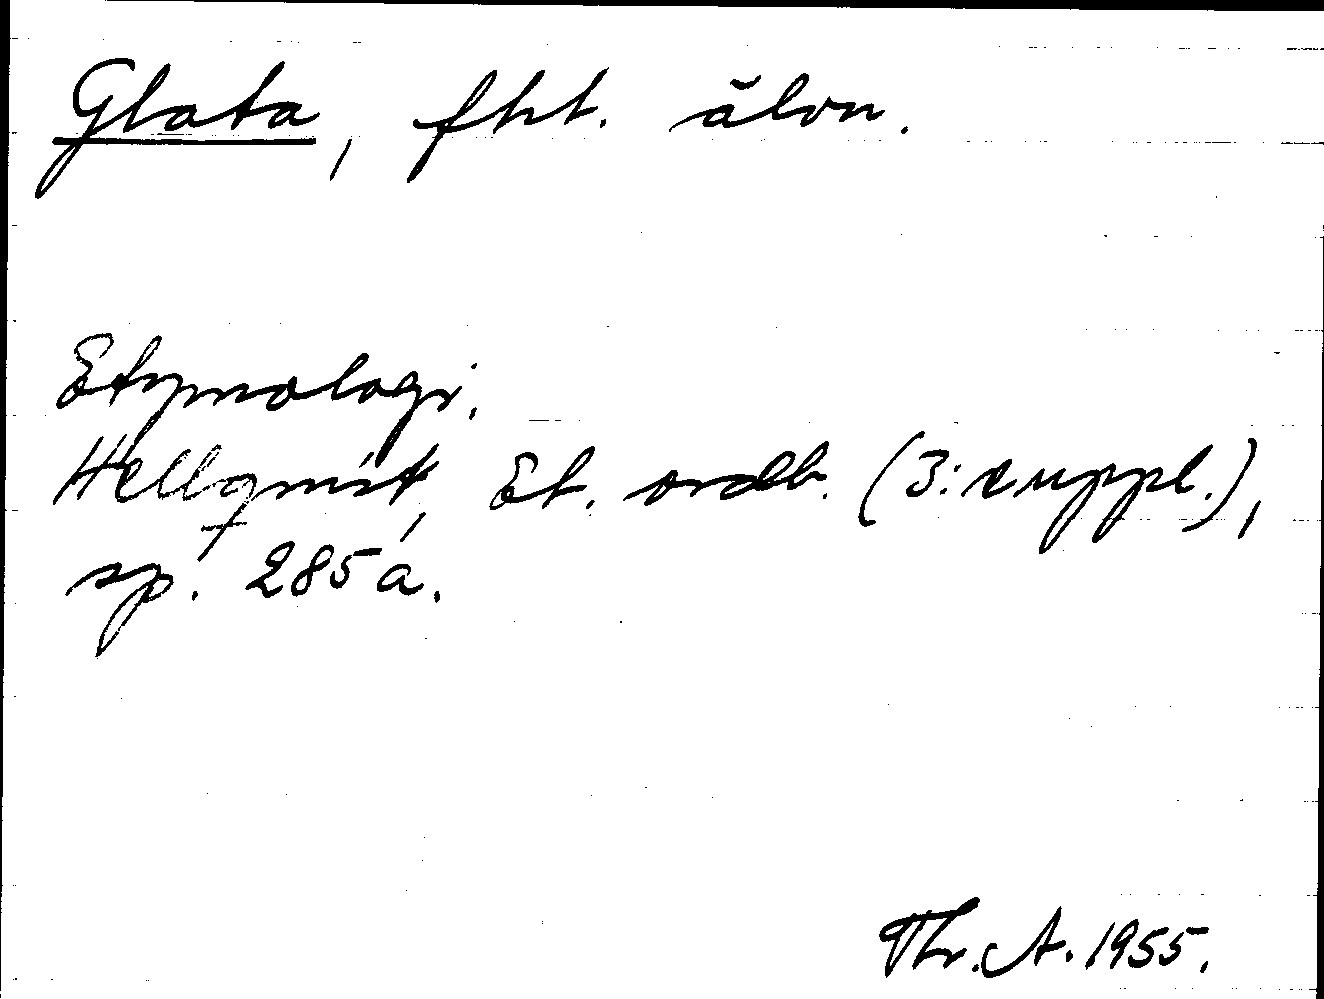 Glata, fht. älvn.
Etymologi.
Hellquist, Et. ordb. (3: suppl.),
sp. 285 a.
Thr. A. 1955.